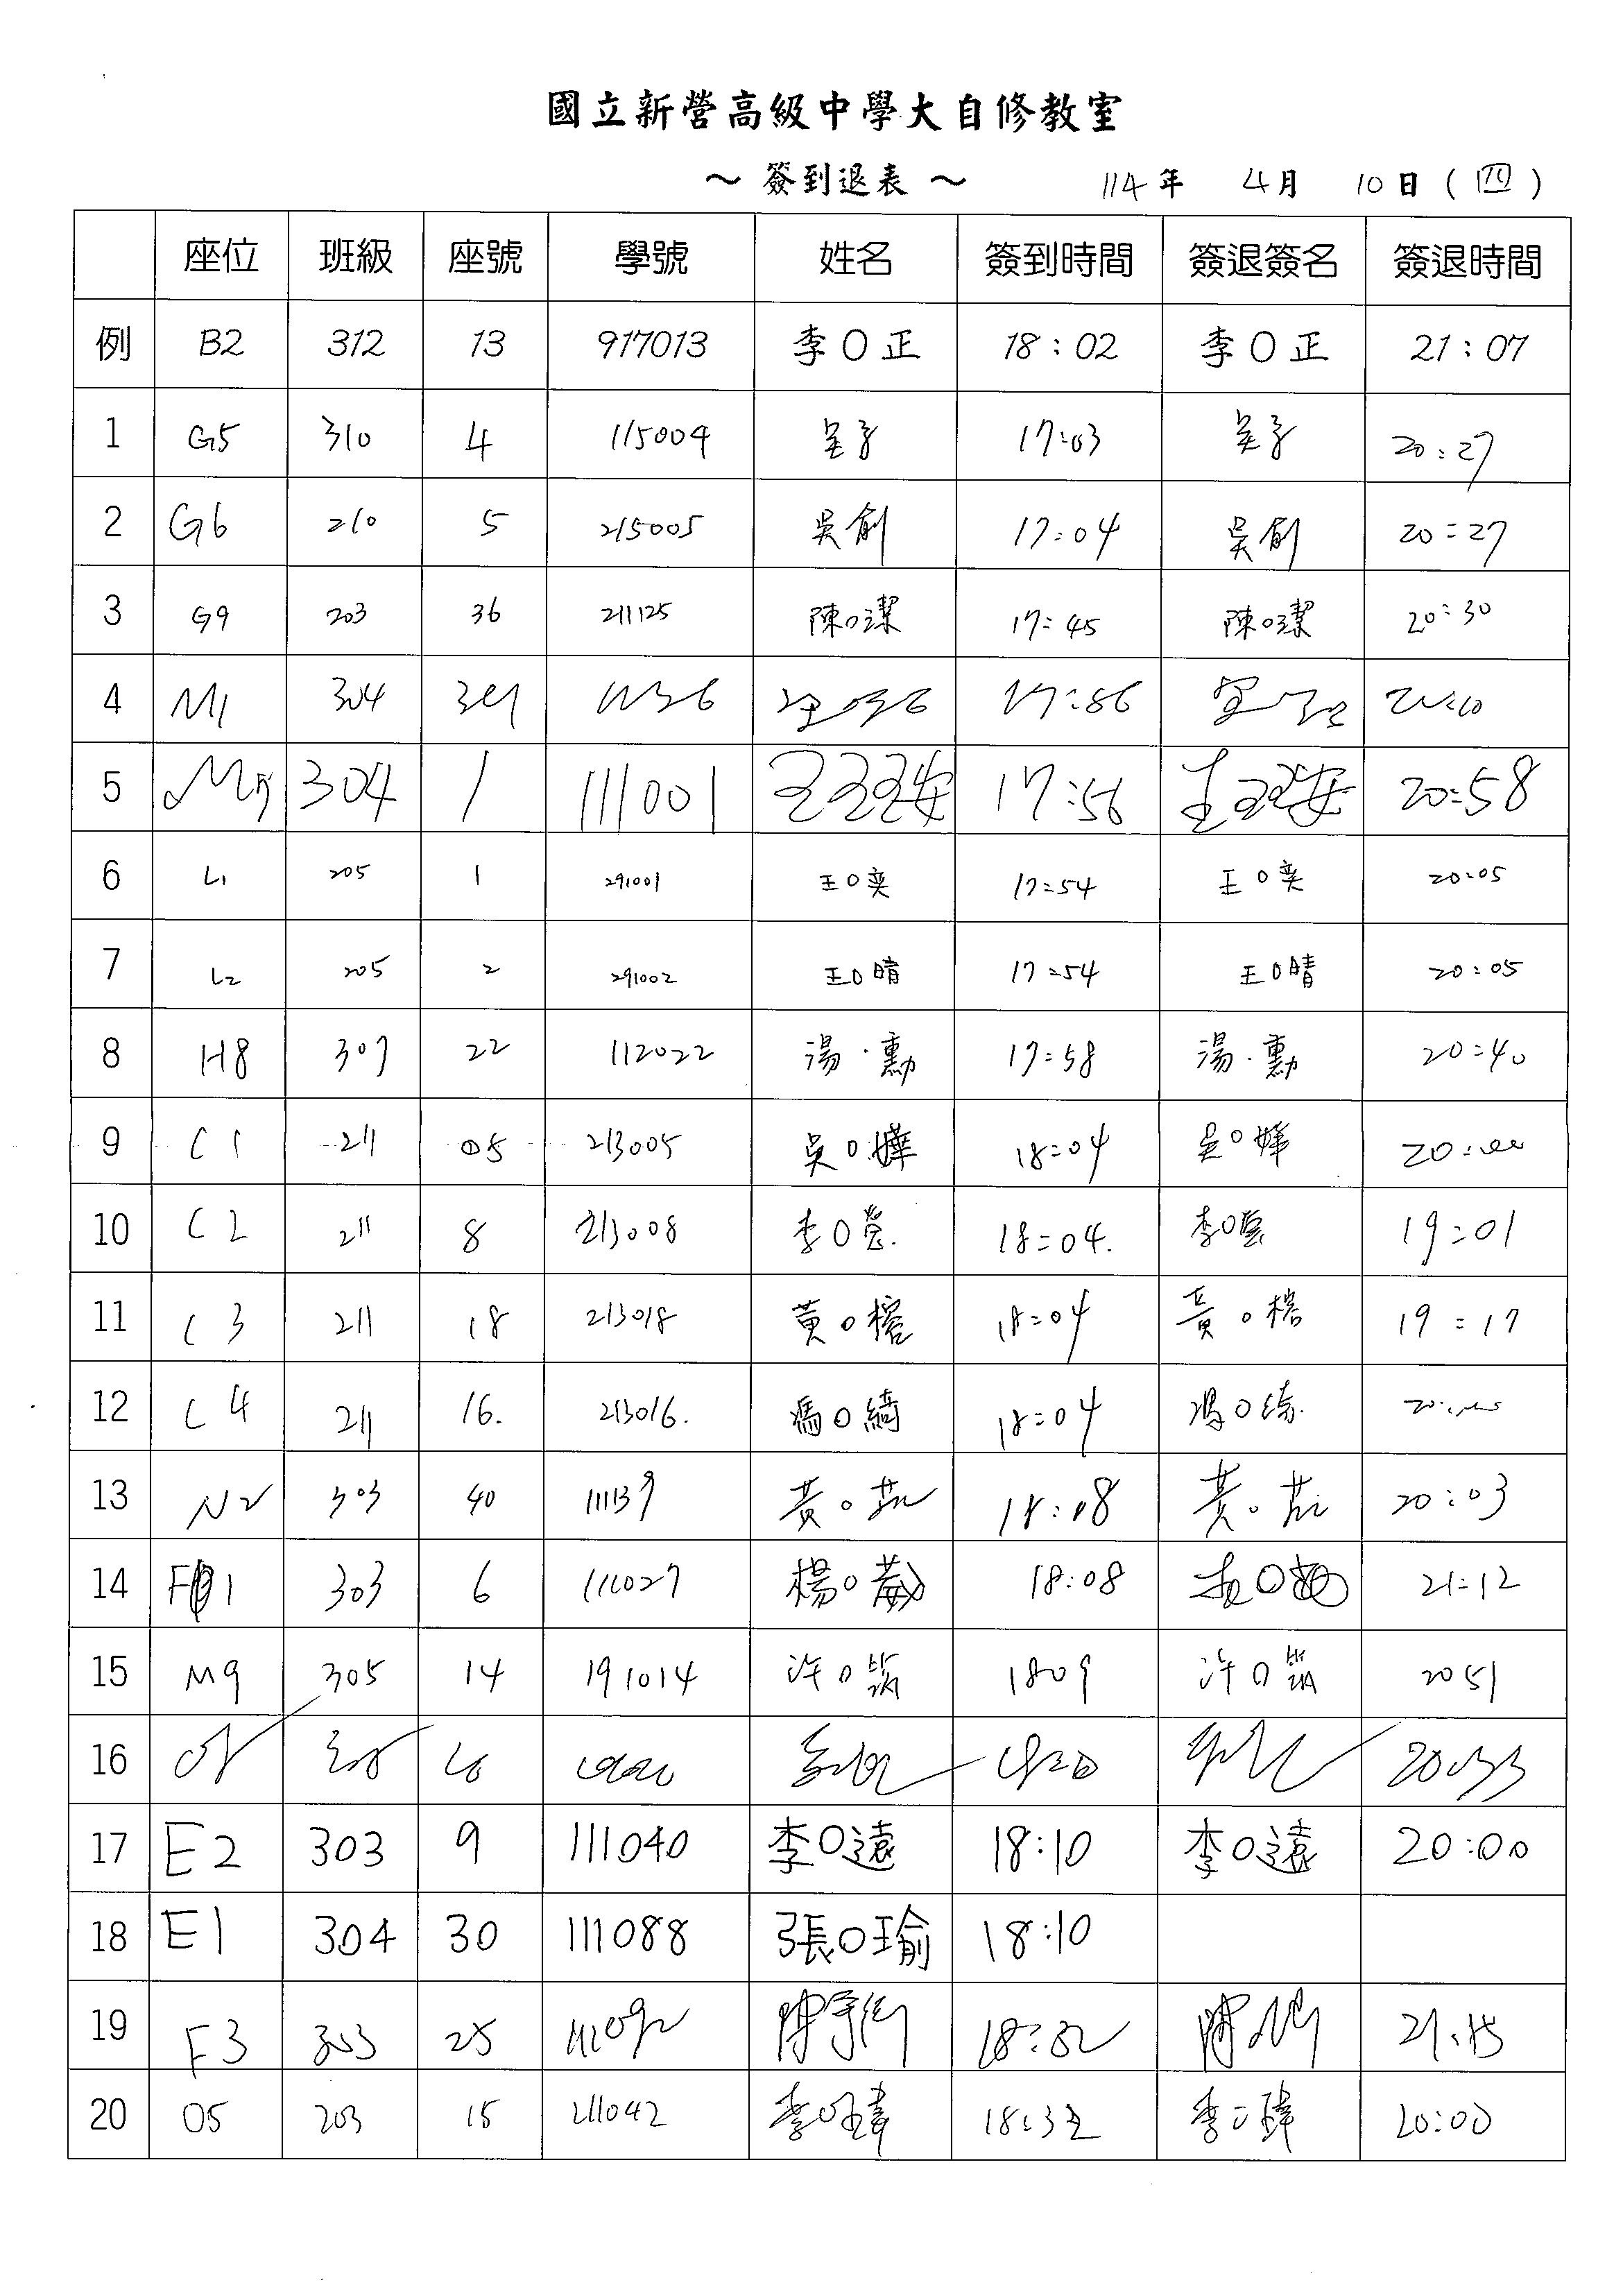 國立新營高級中學大自修教室
～ 簽到退表 ～ 114年 4月 10日 (四)
座位 班級 座號 學號 姓名 簽到時間 簽退簽名 簽退時間
例 B2 312 13 917013 李O正 18:02 李O正 21:07
1 G5 310 4 115004 17:03 20:27
2 G6 210 5 215005 吳創 17:04 吳創 20:27
3 G9 203 36 211125 陳O潔 17:45 陳O潔 20:30
4 M1 304
5 304 1 111001 17:56 20:58
6 L1 205 1 291001 王O奕 17:54 王O奕 20:05
7 L2 205 2 291002 王O晴 17:54 王O晴 20:05
8 H8 307 22 112022 湯·勳 17:58 湯·勳 20:40
9 C1 211 05 213005 吳O嬅 18:04 吳O嬅
10 C2 211 8 213008 李O 18:04. 李O 19:01
11 C3 211 18 213018 黃O榕 18:04 黃O榕 19:17
12 C4 211 16. 213016. 馮O綺 18:04 馮O綺
13 N2 303 40 111139 黃O 18:08 黃O 20:03
14 303 6 111027 楊O葳 18:08 21:12
15 M9 305 14 191014 許O筑 1809 許O筑 2051
16
17 E2 303 9 111040 李O遠 18:10 李O遠 20:00
18 E1 304 30 111088 張O瑜 18:10
19 F3 303 25 18:32 21:15
20 O5 203 15 211042 20:00